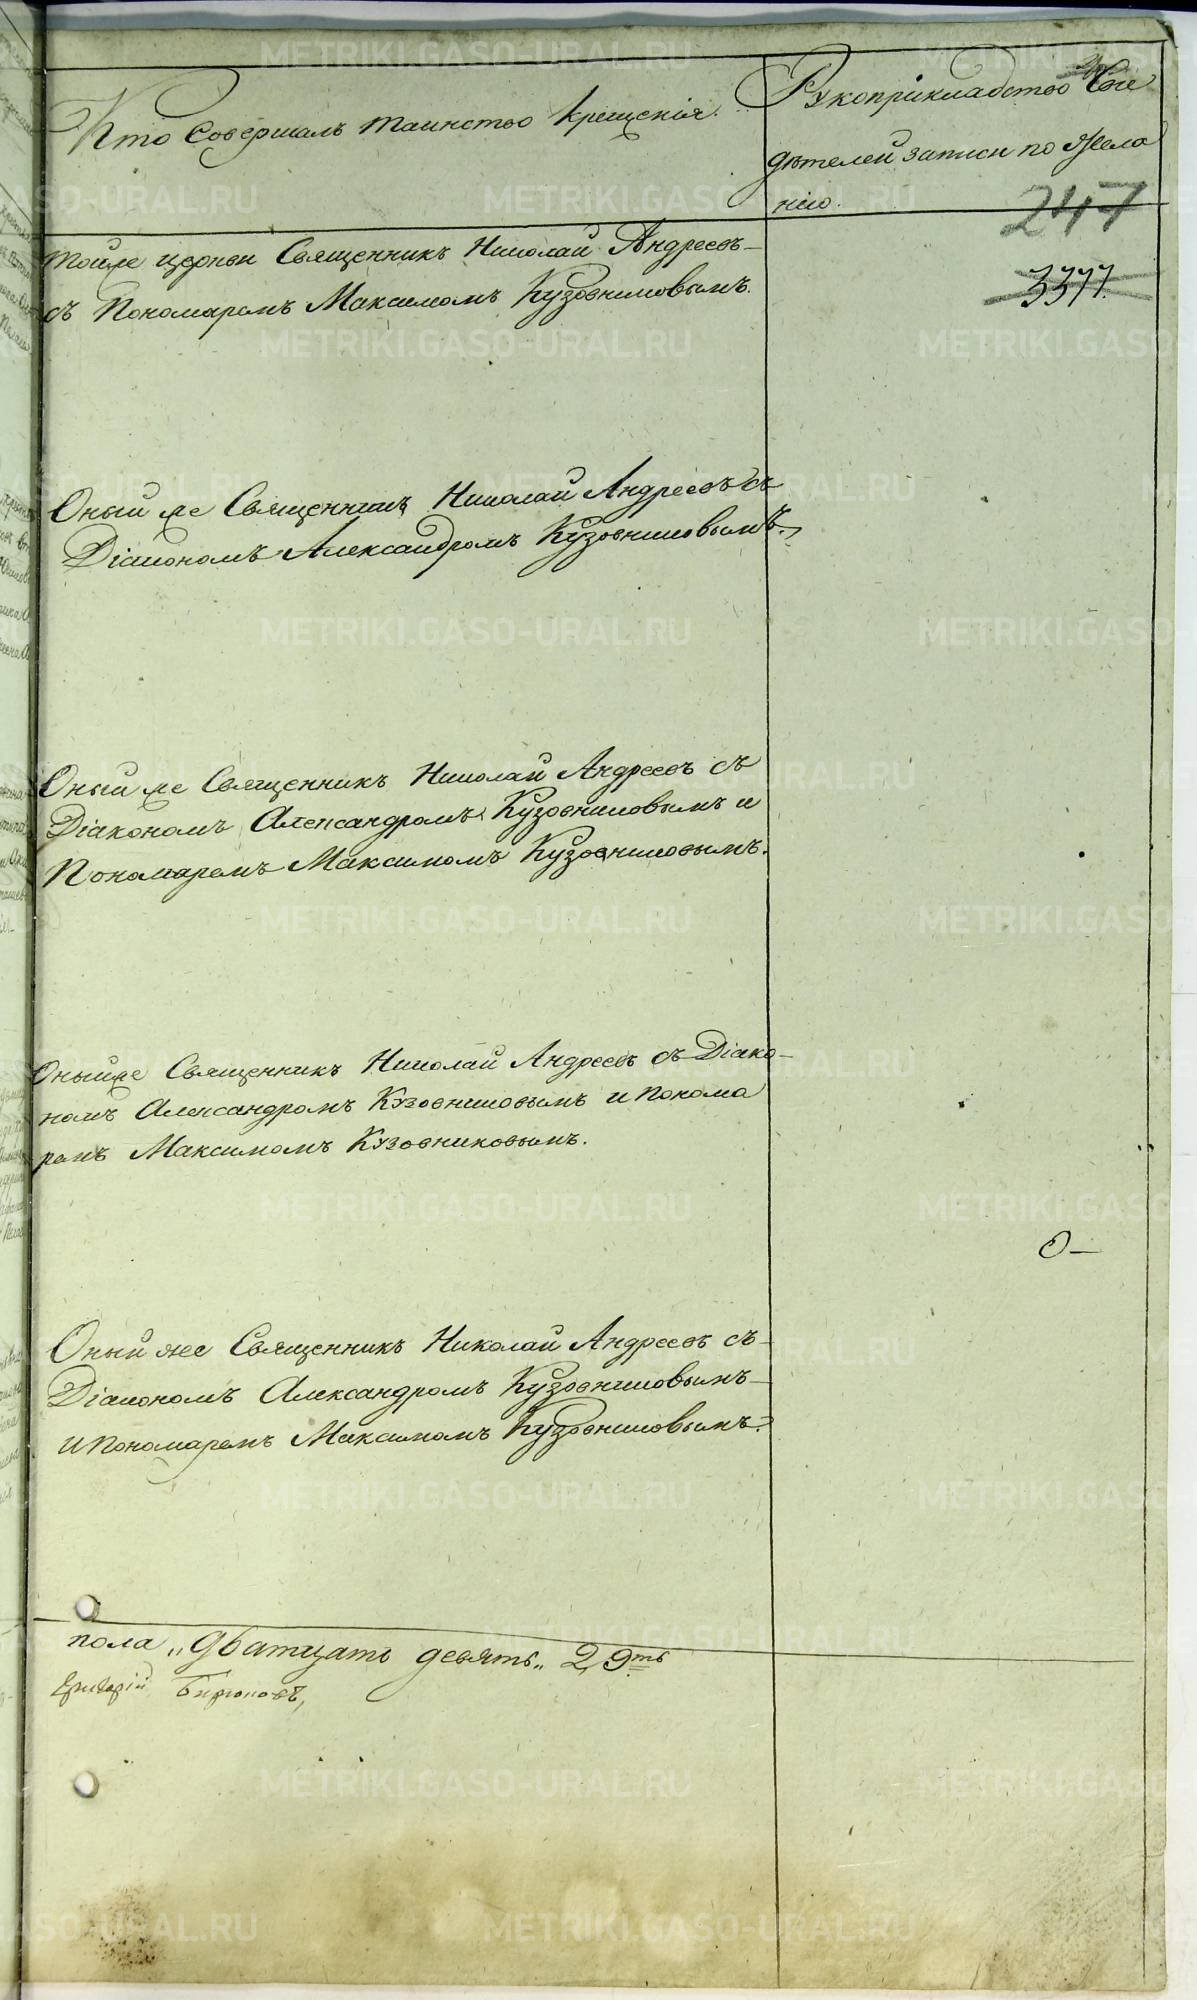 Кто совершалъ таинство крещенія.
Рукоприкладство
дѣтелей записи по жела
нію.
247
3377.
тойже церкви Священникъ Николай Андреевъ
съ Пономаремъ Максимомъ Кузовниковымъ.
Оный же Священникъ Николай Андреевъ съ
Діакономъ Александромъ Кузовниковымъ.
Оный же Священникъ Николай Андреевъ съ
Діакономъ Александромъ Кузовниковымъ и
Пономаремъ Максимомъ Кузовниковымъ.
Оныйже Священникъ Николай Андреевъ съ Діако-
номъ Александромъ Кузовниковымъ и понома
ремъ Максимомъ Кузовниковымъ.
Оный же Священникъ Николай Андреевъ съ
Діакономъ Александромъ Кузовниковымъ
и пономаремъ Максимомъ Кузовниковымъ.
пола „дватцать девять„ 29ть
Григорій Бирюковъ,
METRIKI.GASO-URAL.RU